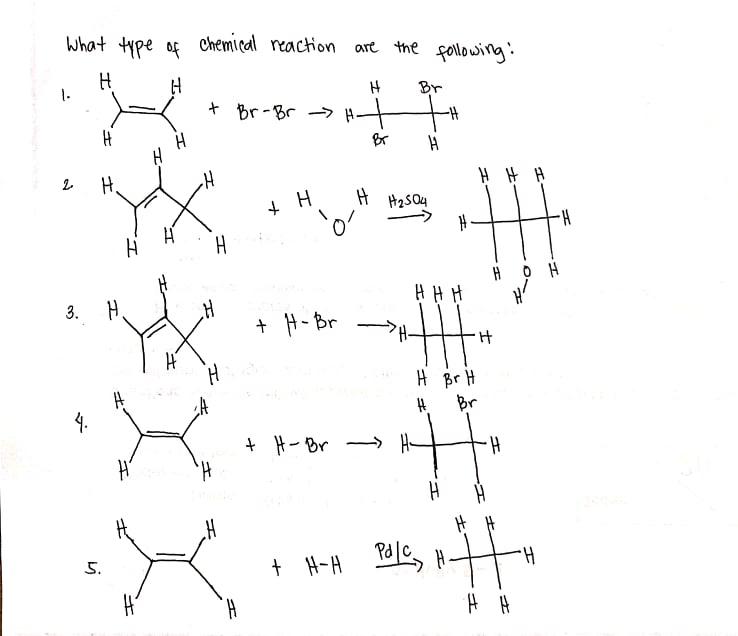 What type of chemical reaction are the following:
1.
H H
H H
+ Br-Br →
H Br
H H
Br H
2
H
H H
H H H
+ H H
O
H2SO4
H H H
H H
H O H
H
3.
H
H H
H
H
+ H-Br →
H H H
H H
H Br H
4.
H H
H H
+ H-Br →
H Br
H H
H H
5.
H H
H H
+ H-H
Pd/C
H H
H H
H H